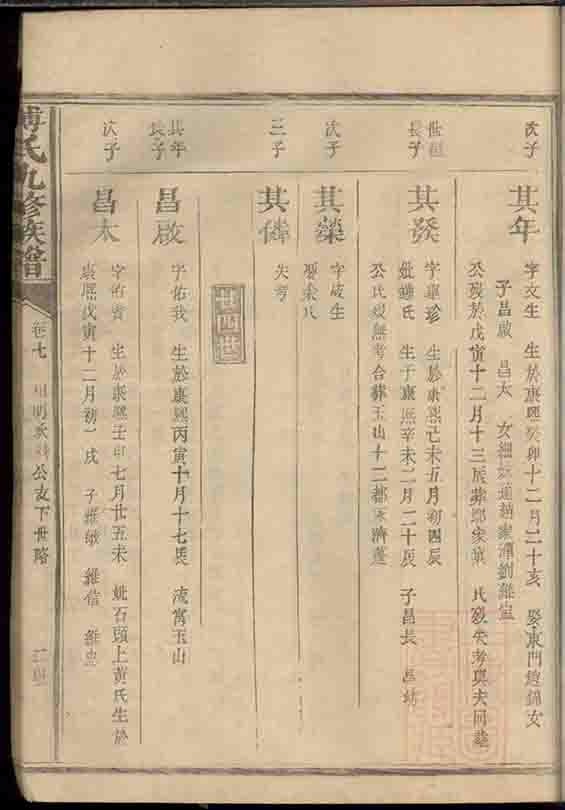 次子
其年
字文生 生於康熙癸卯十二月二十亥 娶東門趙錦女
子昌啟 昌太 女細妹適趙家潭劉維
公歿於戊寅十二月十三辰葬鄧家 氏歿失考與夫同塋
長子
其發
字 珍 生於康熙己未五月初四辰
妣鍾氏 生于康熙辛未二月二十辰 子昌長 昌
公氏歿無考合葬玉山十二都
次子
其榮
字 生
娶余氏
三子
其
失考
廿四世
其年
長子
昌啟
字佑我 生於康熙丙寅十月十七辰 流寓玉山
次子
昌太
字佑 生於康熙壬申七月廿五未 妣石頭上黃氏生於
康熙戊寅十二月初一戌 子維 維信 維
氏九修族譜
卷七
公支下世略